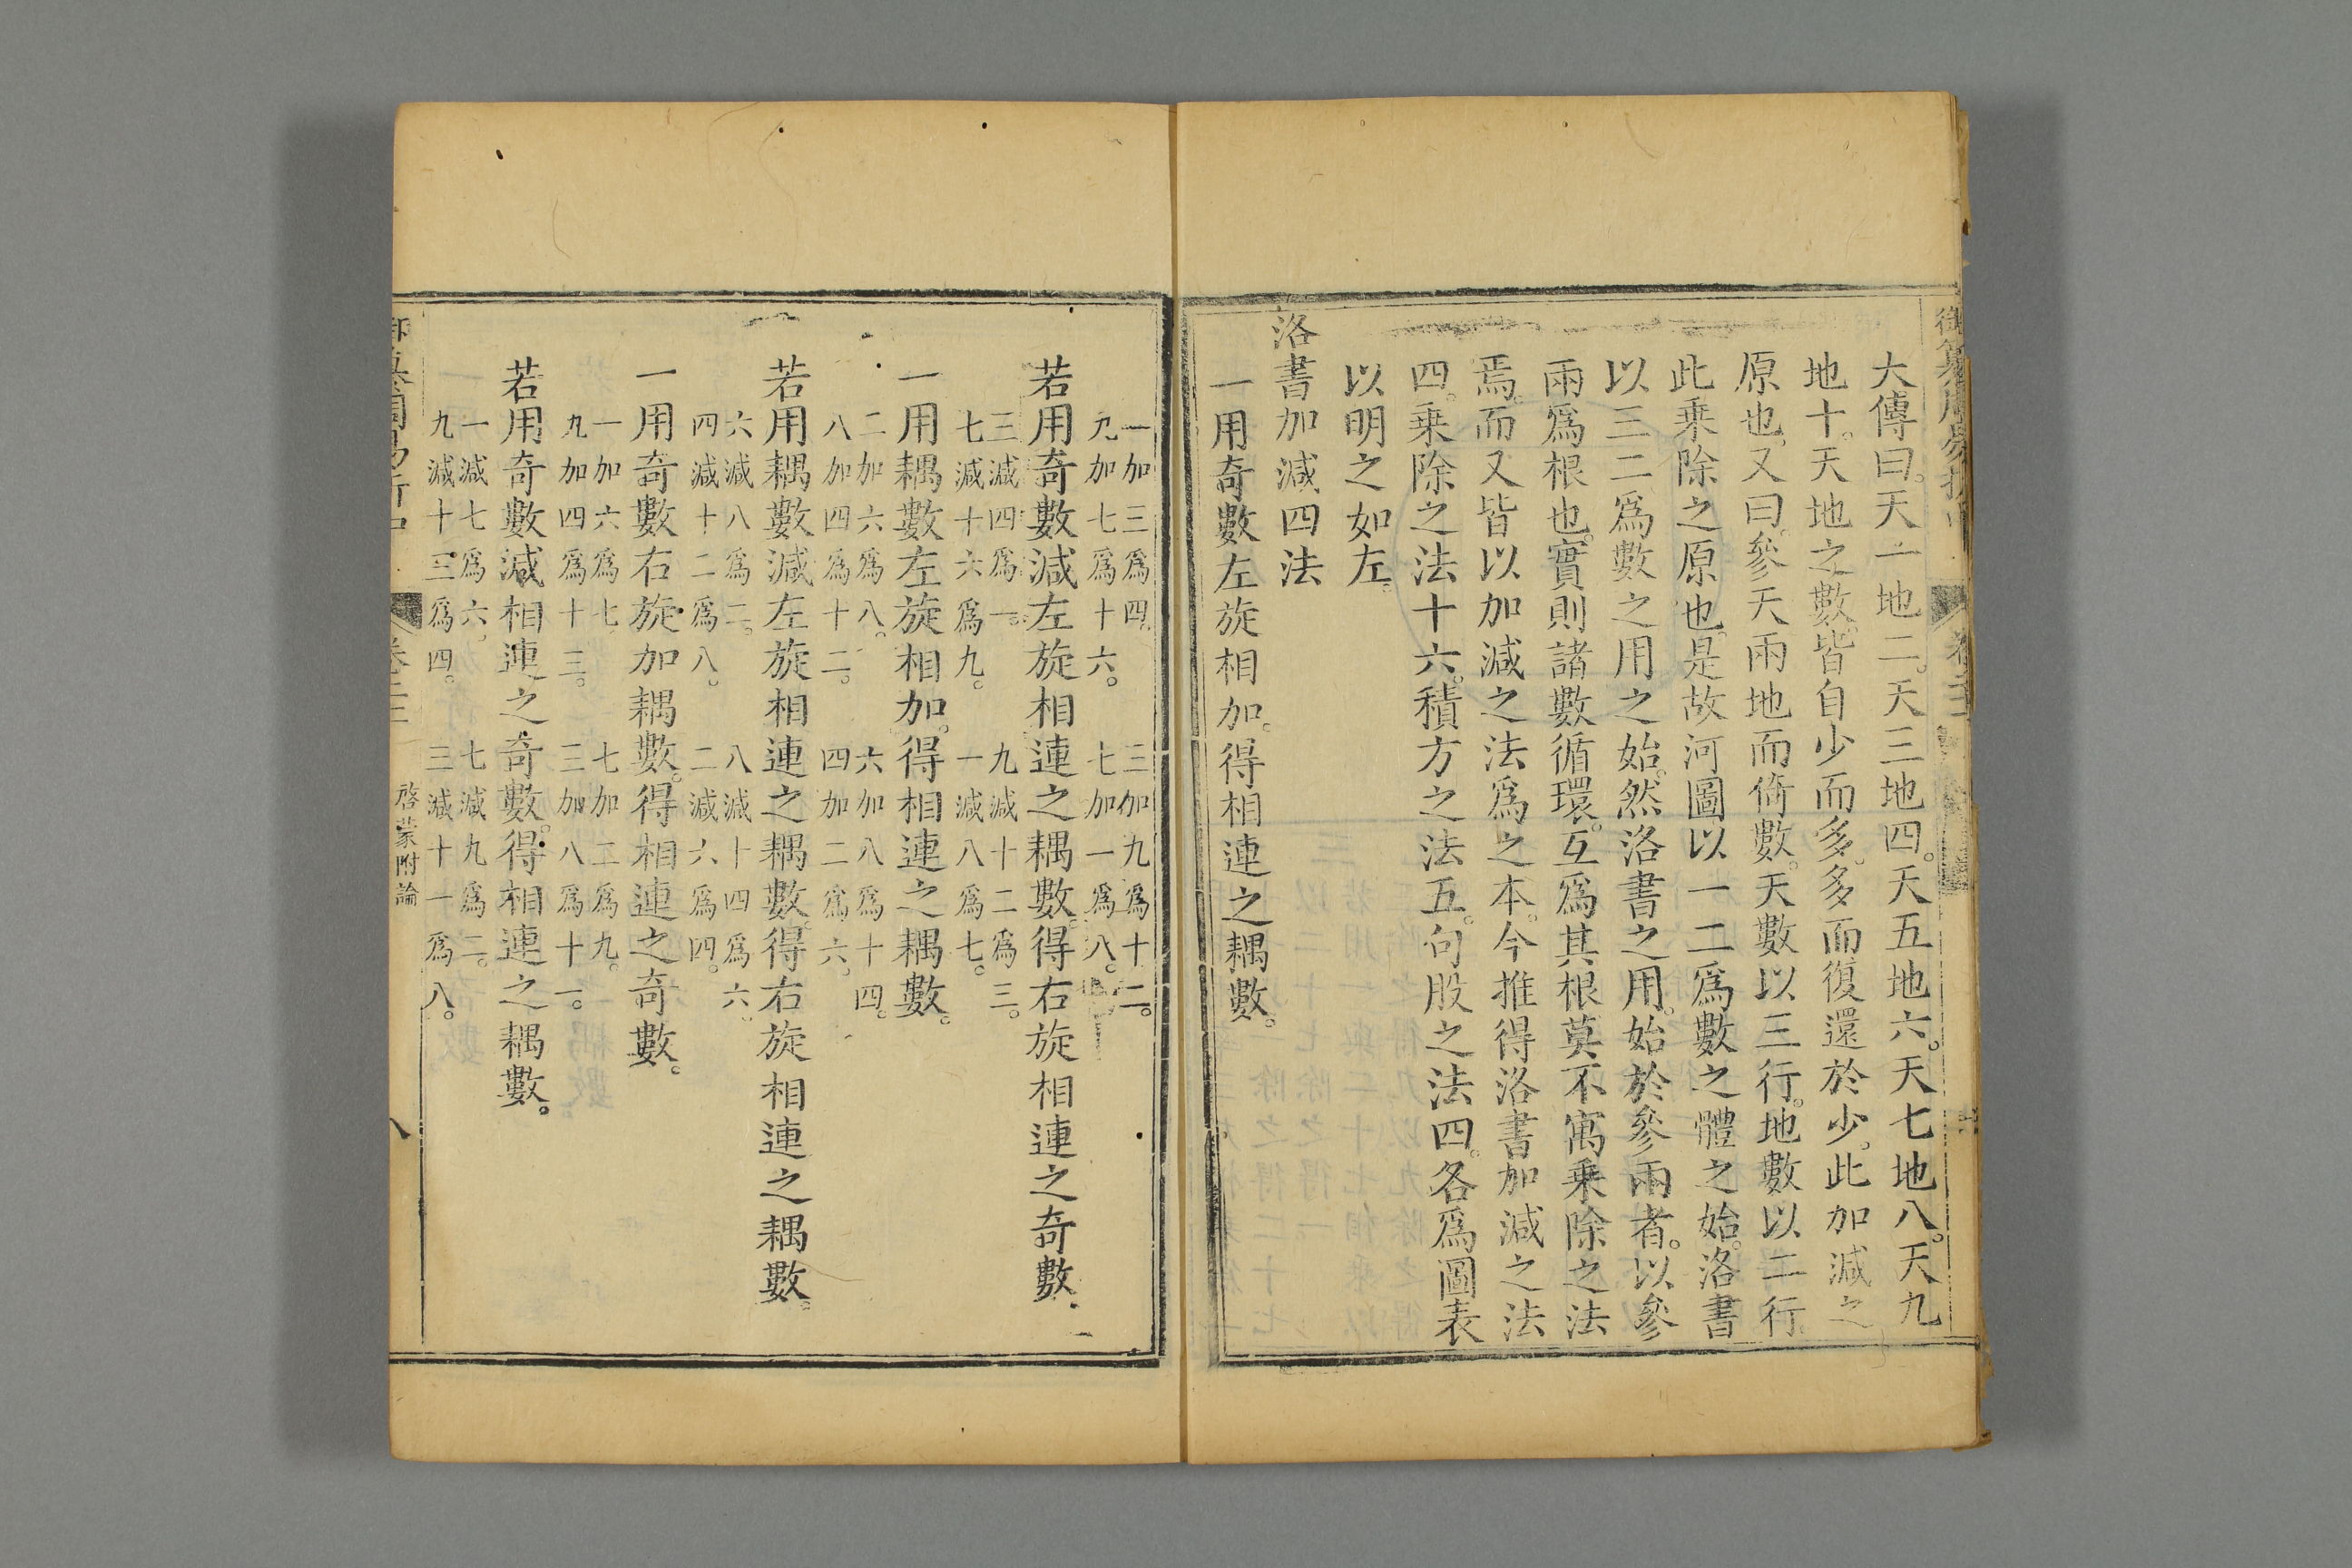 大傳曰。天一地二。天三地四。天五地六。天七地八。天九
地十。天地之數。皆自少而多。多而復還於少。此加減之
原也。又曰。參天兩地而倚數。天數以三行。地數以二行
此乗除之原也。是故河圖以一二爲數之體之始。洛書
以三二爲數之用之始。然洛書之用。始於參兩者。以參
兩爲根也。實則諸數循環。互爲其根莫不寓乗除之法
焉。而又皆以加減之法爲之本。今推得洛書加減之法
四。乗除之法十六。積方之法五。句股之法四。各爲圖表
以明之如左。
洛書加減四法
一用奇數左旋相加。得相連之耦數。
一加三爲四。 三加九爲十二。
九加七爲十六。 七加一爲八。
若用奇數減左旋相連之耦數。得右旋相連之奇數。
三減四爲一。 九減十二爲三。
七減十六爲九。 一減八爲七。
一用耦數左旋相加。得相連之耦數。
二加六爲八。 六加八爲十四。
八加四爲十二。 四加二爲六。
若用耦數減左旋相連之耦數。得右旋相連之耦數。
六減八爲二。 八減十四爲六。
四減十二爲八。 二減六爲四。
一用奇數右旋加耦數。得相連之奇數。
一加六爲七。 七加二爲九。
九加四爲十三。 三加八爲十一。
若用奇數減相連之奇數。得相連之耦數。
一減七爲六。 七減九爲二。
九減十三爲四。 三減十一爲八。
卷二十 啓蒙附論 八